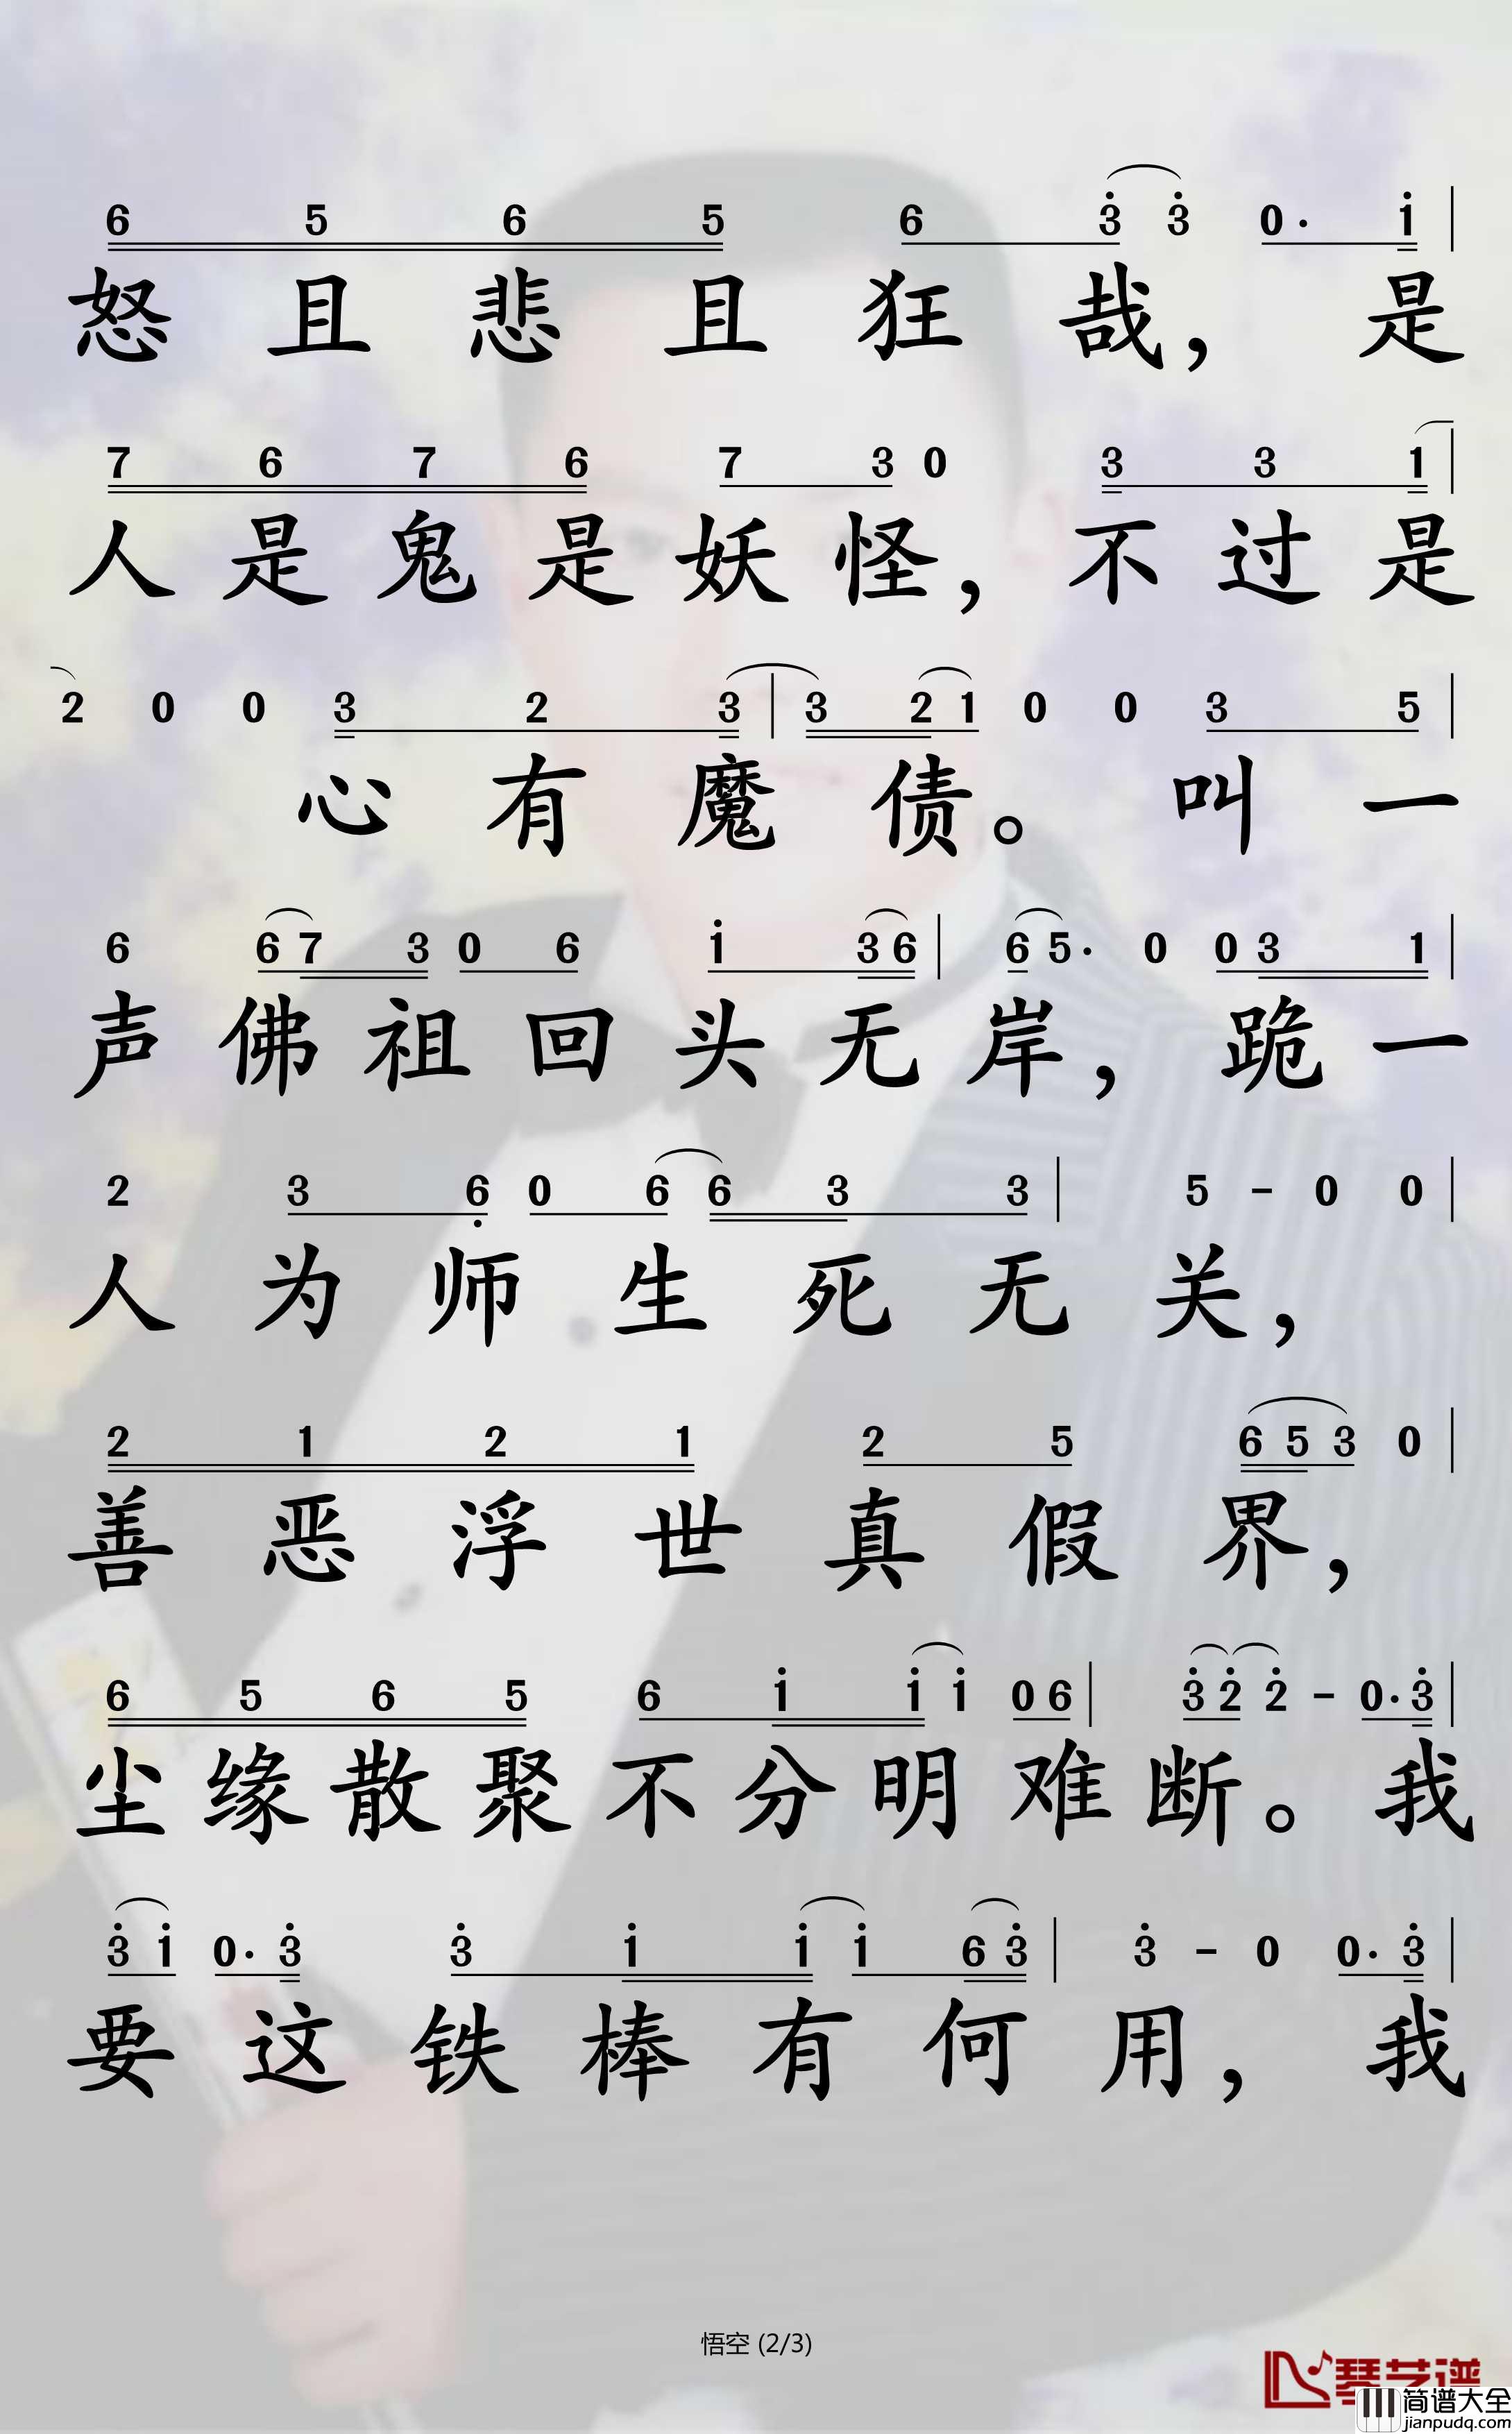 6 5 6 5 6 3̇ 3̇ 0· 1̇ |
怒 且 悲 且 狂 哉， 是
7 6 7 6 7 3 0 3 3 1 |
人 是 鬼 是 妖 怪， 不 过 是
2 0 0 3 2 3 | 3 2 1 0 0 3 5 |
心 有 魔 债。 叫 一
6 6 7 3 0 6 1̇ 3 6 | 6 5· 0 0 3 1 |
声 佛 祖 回 头 无 岸， 跪 一
2 3 6̣ 0 6 6 3 3 | 5 - 0 0 |
人 为 师 生 死 无 关，
2 1 2 1 2 5 6 5 3 0 |
善 恶 浮 世 真 假 界，
6 5 6 5 6 1̇ 1̇ 1̇ 0 6 | 3̇ 2̇ 2̇ - 0· 3̇ |
尘 缘 散 聚 不 分 明 难 断。 我
3̇ 1̇ 0· 3̇ 3̇ 1̇ 1̇ 1̇ 6 3̇ | 3̇ - 0 0· 3̇ |
要 这 铁 棒 有 何 用， 我
悟空 (2/3)
琴艺谱
简谱大全
jianpudq.com